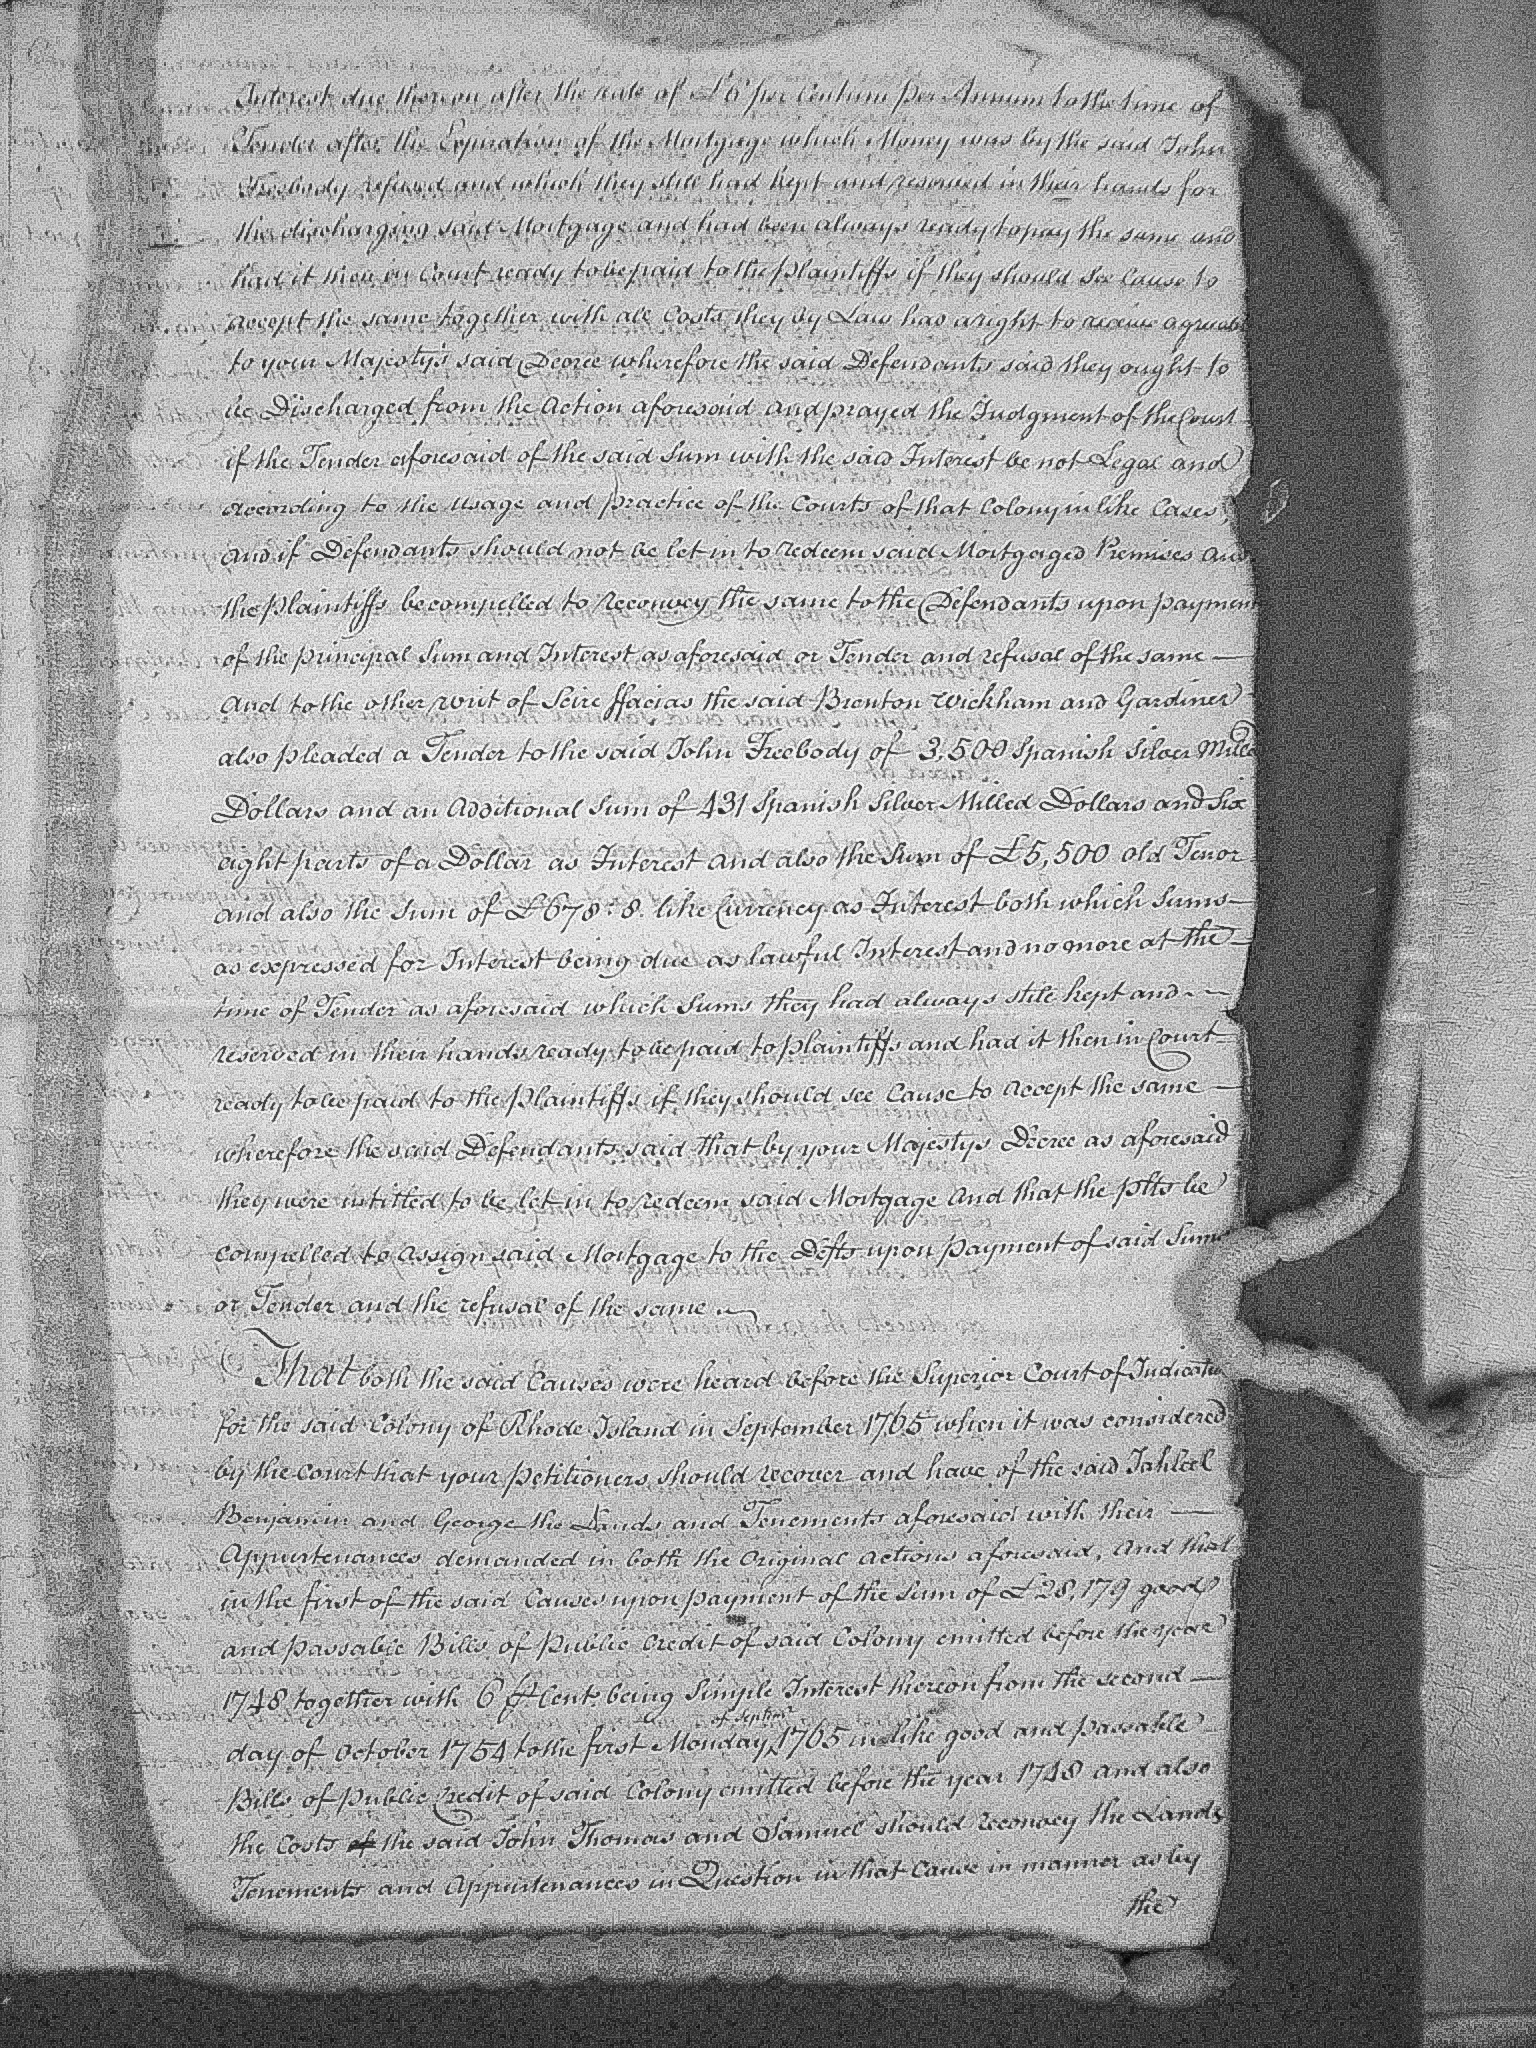 Interest due thereon after the rate of £6 per Centum per Annum to the time of
Tender after the Expiration of the Mortgage which Money was by the said John
Freebody refused and which they still had kept and reserved in their hands for
the discharging said Mortgage and had been always ready to pay the same and
had it then in Court ready to be paid to the Plaintiffs if they should see Cause to
accept the same together with all Costs they by Law had a right to receive agreeable
to your Majesty's said Decree wherefore the said Defendants said they ought to
be Discharged from the Action aforesaid and prayed the Judgment of the Court
if the Tender aforesaid of the said Sum with the said Interest be not Legal and
according to the usage and practice of the Courts of that Colony in like Cases,
and if Defendants should not be let in to redeem said Mortgaged Premises and
the Plaintiffs be compelled to reconvey the same to the Defendants upon payment
of the principal Sum and Interest as aforesaid or Tender and refusal of the same —
And to the other writ of Scire ffacias the said Brenton Wickham and Gardiner
also pleaded a Tender to the said John Freebody of 3,500 Spanish Silver Milled
Dollars and an Additional Sum of 431 Spanish Silver Milled Dollars and Six
eight parts of a Dollar as Interest and also the Sum of £5,500 old Tenor
and also the Sum of £678:8. like Currency as Interest both which Sums —
as expressed for Interest being due as lawful Interest and no more at the —
time of Tender as aforesaid which Sums they had always still kept and —
reserved in their hands ready to be paid to Plaintiffs and had it then in Court
ready to be paid to the Plaintiffs if they should see Cause to accept the same —
wherefore the said Defendants said that by your Majestys Decree as aforesaid
they were intitled to be let in to redeem said Mortgage and that the Plts be
compelled to assign said Mortgage to the Defts upon payment of said Sums
or Tender and the refusal of the same
That both the said Causes were heard before the Superior Court of Judicature
for the said Colony of Rhode Island in September 1765 when it was considered
by the Court that your Petitioners should recover and have of the said Jahleel
Benjamin and George the Lands and Tenements aforesaid with their —
Appurtenances demanded in both the Original actions aforesaid, and that
in the first of the said Causes upon payment of the Sum of £28,179 good
and passable Bills of Public Credit of said Colony emitted before the year
1748 together with 6 ⅌ Cent. being Simple Interest thereon from the second —
day of October 1754 to the first Monday of Septemr 1765 in like good and passable
Bills of Public Credit of said Colony emitted before the year 1748 and also
the Costs of the said John Thomas and Samuel should reconvey the Lands
Tenements and Appurtenances in Question in that Cause in manner as by
the